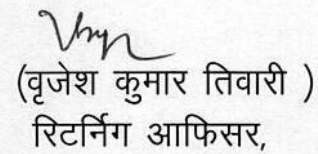 (वृजेश कुमार तिवारी )
रिटर्निग आफिसर,